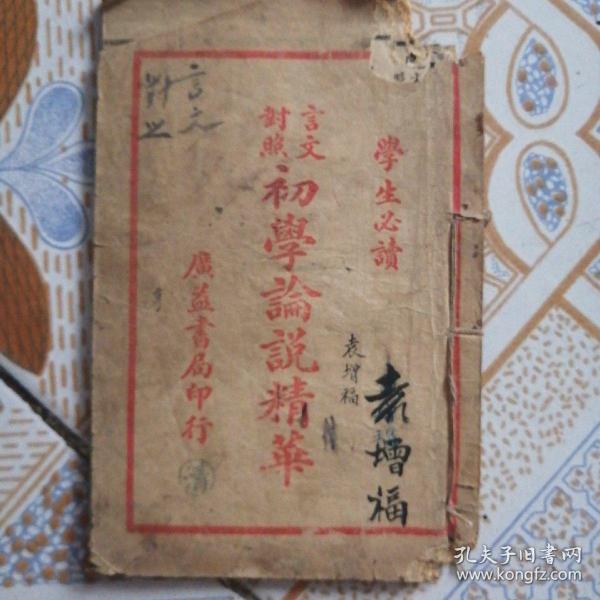 學生必讀
言文
對照
初學論說精華
廣益書局印行
袁增福
袁增福
言文
對
孔夫子旧书网
www.kongfz.com